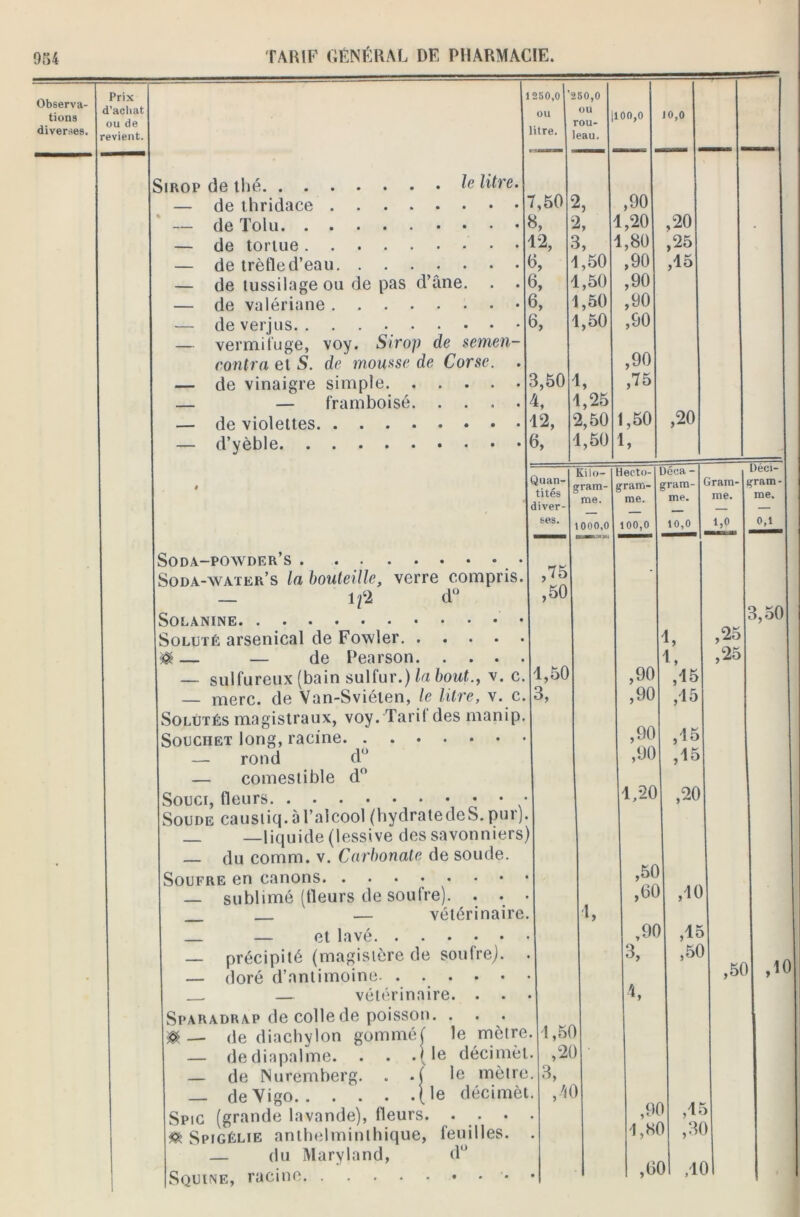 954 TARIF GÉNÉRAL DE PHARMACIE.
Observations diverses. | Prix d'achat ou de revient. | | 1250,0 ou litre. | 250,0 ou rouleau. | 100,0 | 10,0
SIROP de thé. . . . . . . . le litre.
— de thridace . . . . . . . . 7,50 2, ,90
— de Tolu. . . . . . . . . . 8, 2, 1,20 ,20
— de tortue . . . . . . . . . 12, 3, 1,80 ,25
— de trèfle d'eau. . . . . . . . 6, 1,50 ,90 ,15
— de tussilage ou de pas d'âne. . . 6, 1,50 ,90
— de valériane . . . . . . . . 6, 1,50 ,90
— de verjus. . . . . . . . . . 6, 1,50 ,90
— vermifuge, voy. Sirop de semen-
contra et S. de mousse de Corse. . ,90
— de vinaigre simple. . . . . . 3,50 1, ,75
— — framboisé. . . . . 4, 1,25
— de violettes. . . . . . . . . 12, 2,50 1,50 ,20
— d'yèble. . . . . . . . . . 6, 1,50 1,
Quantités diverses. | Kilogramme. — 1000,0 | Hectogramme. — 100,0 | Décagramme. — 10,0 | Gramme. — 1,0 | Décigramme. — 0,1
SODA-POWDER'S . . . . . . . . . .
SODA-WATER'S la bouteille, verre compris. ,75
— 1/2 d° ,50
SOLANINE. . . . . . . . . . . . 3,50
SOLUTÉ arsenical de Fowler. . . . . . 1, ,25
— — de Pearson. . . . . 1, ,25
— sulfureux (bain sulfur.) la bout., v. c. 1,50 ,90 ,15
— merc. de Van-Sviéten, le litre, v. c. 3, ,90 ,15
SOLUTÉS magistraux, voy. Tarif des manip.
SOUCHET long, racine. . . . . . . . ,90 ,15
— rond d° ,90 ,15
— comestible d°
SOUCI, fleurs. . . . . . . . . . . 1,20 ,20
SOUDE caustiq. à l'alcool (hydrate de S. pur).
— — liquide (lessive des savonniers)
— du comm. v. Carbonate de soude.
SOUFRE en canons. . . . . . . . . ,50
— sublimé (fleurs de soufre). . . . ,60 ,10
— — — vétérinaire. 1,
— — et lavé. . . . . . . ,90 ,15
— précipité (magistère de soufre). . 3, ,50
— doré d'antimoine. . . . . . . ,50 ,10
— — vétérinaire. . . . 4,
SPARADRAP de colle de poisson. . . .
— de diachylon gommé ( le mètre. 1,50
— de diapalme. . . . ( le décimèt. ,20
— de Nuremberg. . . ( le mètre. 3,
— de Vigo. . . . . . ( le décimèt. ,40
SPIC (grande lavande), fleurs. . . . . ,90 ,15
SPIGÉLIE anthelminthique, feuilles. . 1,80 ,30
— du Maryland, d°
SQUINE, racine. . . . . . . . . . ,60 ,10